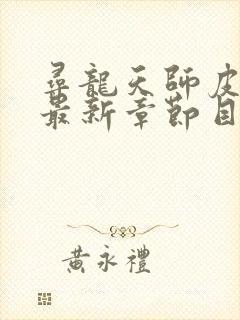 尋龍天師皮
最新章節目
黃永禮